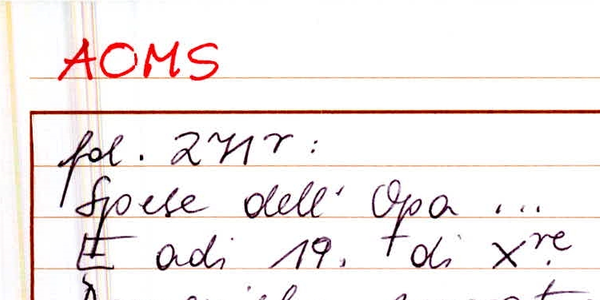 AOMS
fol. 271r:
Spese dell' Opa ...
E adi 19. di Xre.